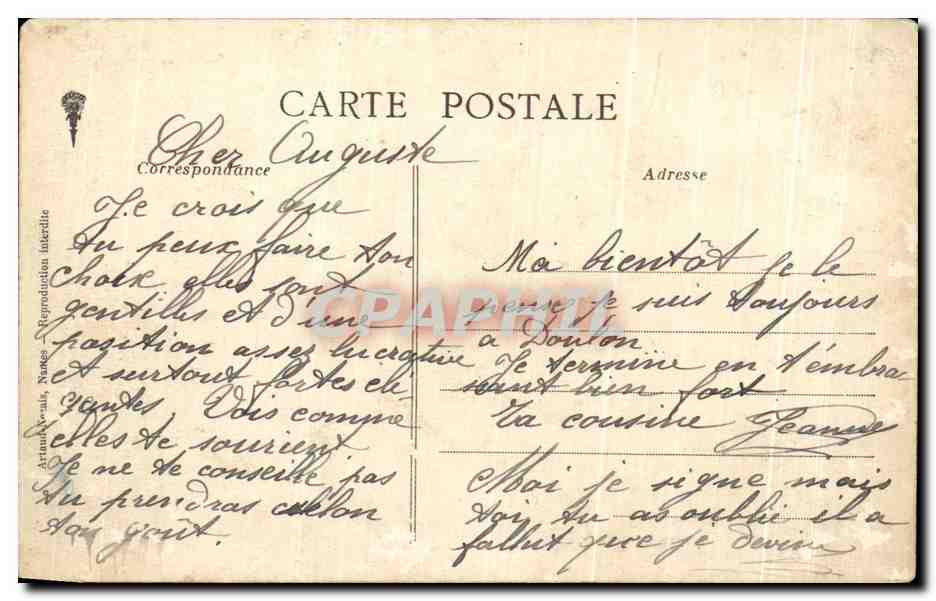 CARTE POSTALE
Correspondance
Adresse
Artaud-Nozais, Nantes - Reproduction interdite
CPAPHIL
Cher Auguste
Je crois que
tu peux faire ton
choix elles sont
gentilles et d'une
position assez lucrative
et surtout fortes élé-
gantes. Vois comme
elles te sourient
Je ne te conseille pas
tu prendras celon
ton goût.
bientôt je le
pense je suis toujours
a Doulon
Je termine en t'embra-
ssant bien fort
Ta cousine Jeanne
Moi je signe mais
toi tu as oublié il a
fallut que je devine